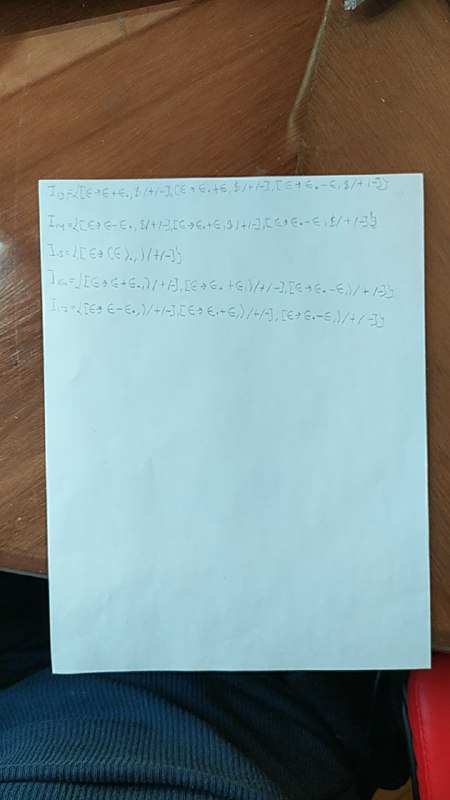 I₁₃={[E→E+E•,$/+/-],[E→E•+E,$/+/-],[E→E•-E,$/+/-]}
I₁₄={[E→E-E•,$/+/-],[E→E•+E,$/+/-],[E→E•-E,$/+/-]}
I₁₅={[E→(E)•,)/+/-]}
I₁₆={[E→E+E•,)/+/-],[E→E•+E,)/+/-],[E→E•-E,)/+/-]}
I₁₇={[E→E-E•,)/+/-],[E→E•+E,)/+/-],[E→E•-E,)/+/-]}